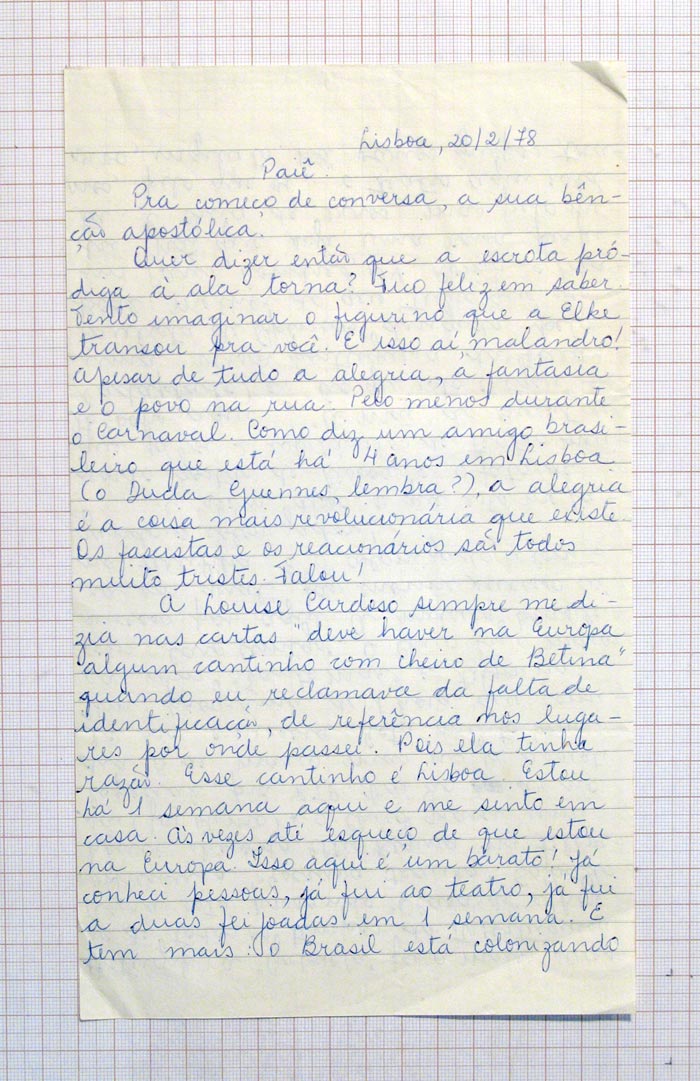 Lisboa, 20/2/78
Paiê.
Pra começo de conversa, a sua bên-
ção apostólica.
Quer dizer então que a escrota pró-
diga à ala torna? Fico feliz em saber.
Tento imaginar o figurino que a Elke
transou pra você. É isso aí, malandro!
Apesar de tudo a alegria, a fantasia
e o povo na rua. Pelo menos durante
o Carnaval. Como diz um amigo brasi-
leiro que está há 4 anos em Lisboa
(o Duda Guennes, lembra?), a alegria
é a coisa mais revolucionária que existe.
Os fascistas e os reacionários são todos
muito tristes. Falou!
A Louise Cardoso sempre me di-
zia nas cartas "deve haver na Europa
algum cantinho com cheiro de Betina"
quando eu reclamava da falta de
identificação, de referência nos luga-
res por onde passei. Pois ela tinha
razão. Esse cantinho é Lisboa. Estou
há 1 semana aqui e me sinto em
casa. Às vezes até esqueço de que estou
na Europa. Isso aqui é um barato! Já
conheci pessoas, já fui ao teatro, já fui
a duas feijoadas em 1 semana. E
tem mais: o Brasil está colonizando